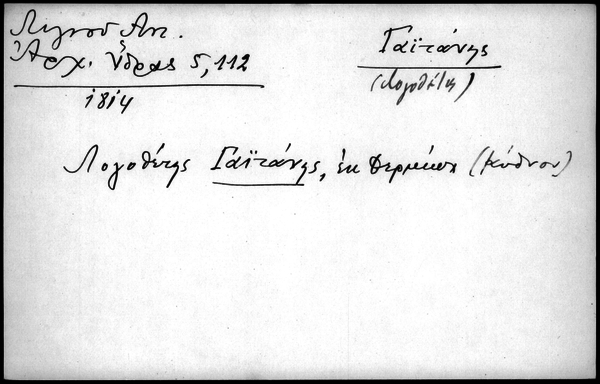 Λιγνοῦ Ἀντ.
Ἀρχ. Ὕδρας 5, 112
1814
Γαϊτάνης
(Λογοθέτης)
Λογοθέτης Γαϊτάνης, ἐκ Θερμίων (Κύθνου)